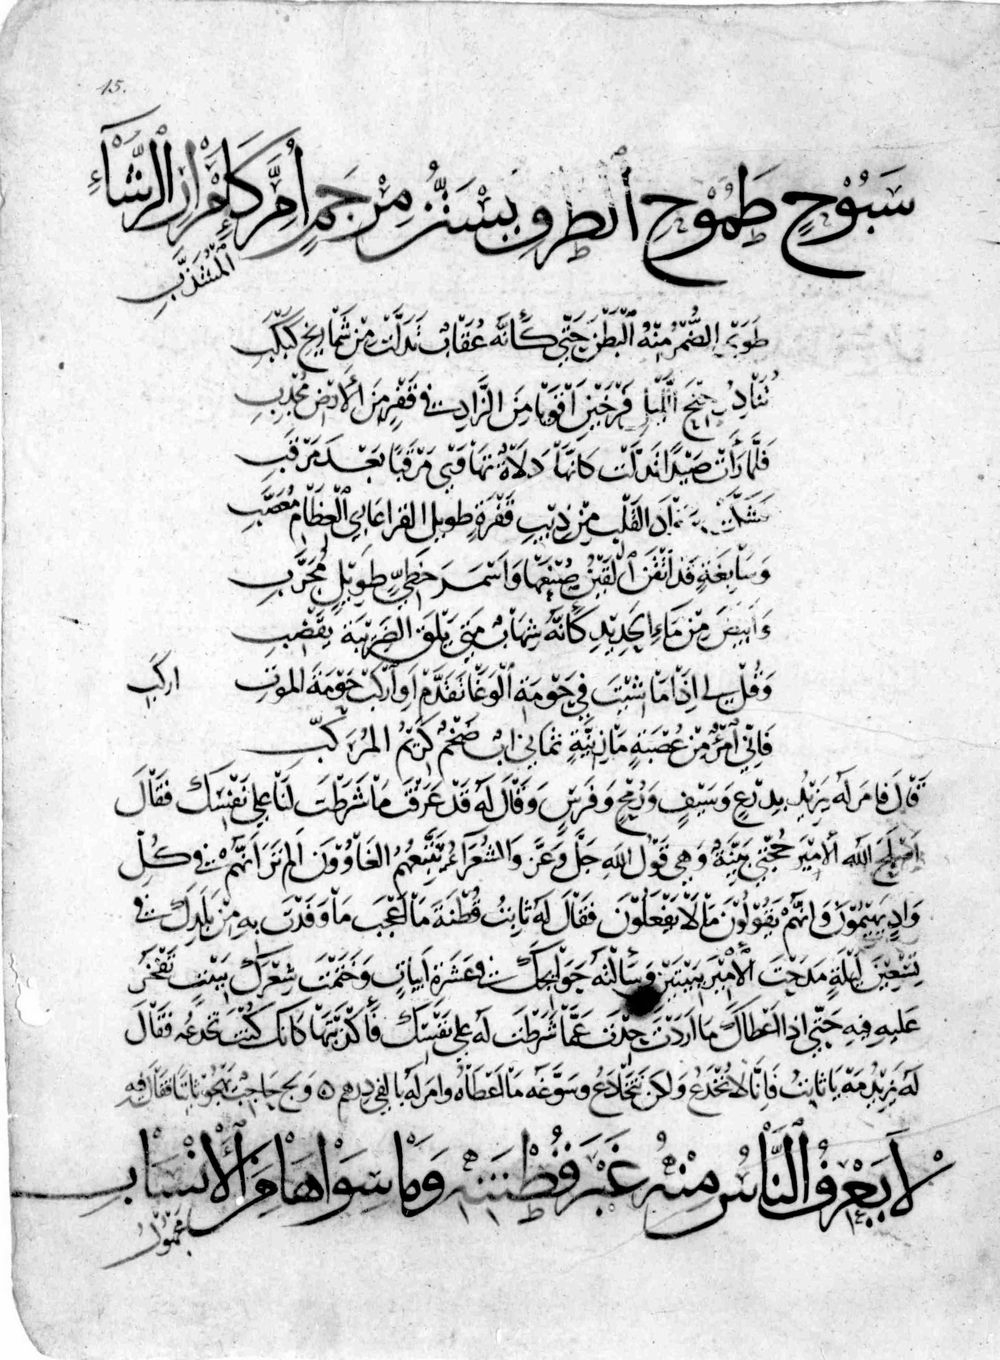 15.
سَبُوْحٍ طَمُوْحِ الطَّرْفِ يَسْتَنُّ مِرْجَمٍ اُمِرَّ كَاِمْرَارِ الرِّشَآءِ
الْمُشَذَّبِ
طَوَى الضُّمْرُ مِنْهُ الْبَطْنَ حَتّٰى كَأَنَّه عُقَابٌ تَدَلَّتْ مِنْ شَمَارِيْخِ كَبْكَبِ
تُبَادِرُ جِنْحَ اللَّيْلِ فَرْخَيْنِ اَقْوَيَا مِنَ الزَّادِ فِى قَفْرٍ مِنَ الْاَرْضِ مُجْدِبِ
فَلَمَّا رَأَتْ صَيْدًا تَدَلَّتْ كَانَّهَا دَلَاةٌ تَهَاوَى مَرْقَبًا بَعْدَ مَرْقَبِ
فَشَكَّتْ سَوَادَ القَلْبِ مِنْ ذِئْبِ قَفْرَةٍ طويلِ القَرا عَارِى الْعِظَامِ مُعَصَّبِ
وَسَابِغَةٍ قَدْ اَتْقَنَ الْقَيْنُ صُنْعَهَا وَاَسْمَرَ خَطِّىٍّ طَوِيْلٍ مُجَرَّبِ
وَاَبْيَضَ مِنْ مَاءِ الْحَدِيْدِ كَأَنَّه شِهَابٌ مَتٰى يَلْقَ الضَّرِيْبَةَ يَقْضِبِ
وَقُلْ لِى اِذَا مَا شِئْتَ فِى حَوْمَةِ الْوَغَا تَقَدَّمْ اَوِ ارْكَبْ حَوْمَةَ الموتِ اركَبِ
فَاِنِّى امْرُؤٌ مِنْ عُصْبَةٍ مَازِنِيَّةٍ نَمَانِى ابٌ ضَخْمٌ كَرِيْمُ المُرَكَّبِ
قَالَ فَامَرَ لَه يَزِيْدُ بِدِرْعٍ وَسَيْفٍ وَرُمْحٍ وَفَرَسٍ وَقَالَ لَه قَدْ عَرَفْتَ مَا شَرَطْتَ لَنَا عَلٰى نَفْسِكَ فَقَالَ
اَصْلَحَ اللّٰه الْاَمِيْرَ حُجَّتِى بَيِّنَةٌ وَهِىَ قَوْلُ اللّٰهِ جَلَّ وَعَزَّ وَالشُّعَرَآءُ يَتَّبِعُهُمُ الْغَاوُوْنَ اَلَمْ تَرَ اَنَّهُمْ فِى كُلِّ
وَادٍ يَهِيْمُوْنَ وَاَنَّهُمْ يَقُوْلُوْنَ مَا لَا يَفْعَلُوْنَ فَقَالَ لَه ثَابِتُ قُطْنَةَ مَا اَعْجَبَ مَا وَفَدْتَ بِهِ مِنْ بَلَدِكَ فِى
تِسْعِيْنَ لَيْلَةٍ مَدَحْتَ الْاَمِيْرَ بِبَيْتَيْنِ وَسَأَلْتَه حَوَائِجَكَ فِى عَشَرَةِ اَبْيَاتٍ وَخَتَمْتَ شِعْرَكَ بِبَيْتٍ تَفْخَرُ
عَلَيْهِ فِيهِ حَتّٰى اِذَا اَعْطَاكَ مَا اَرَدْتَ حِدْتَ عَمَّا شَرَطْتَ لَه عَلٰى نَفْسِكَ فَأَكْذَبْتَهَا كَانَّكَ كُنْتَ تَخْدَعُه فَقَالَ
لَه يَزِيْدُ مَهْ يَا ثَابِتُ فَاِنَّا لَا نُخْدَعُ وَلٰكِنْ نَتَخَادَعُ وَسَوَّغَه مَا اَعْطَاهُ وَامَرَ لَه بِالْفَى دِرْهَمٍ ۞ وَلَجَّ حَاجِبٌ يَهْجُو ثَابِتًا فَقَالَ فِيهِ
لَا يَعْرِفُ النَّاسُ مِنْهُ غَيْرَ قُطْنَتِهِ وَمَا سِوَاهَا مِنَ الْاَنْسَابِ
مَجْهُوْلُ